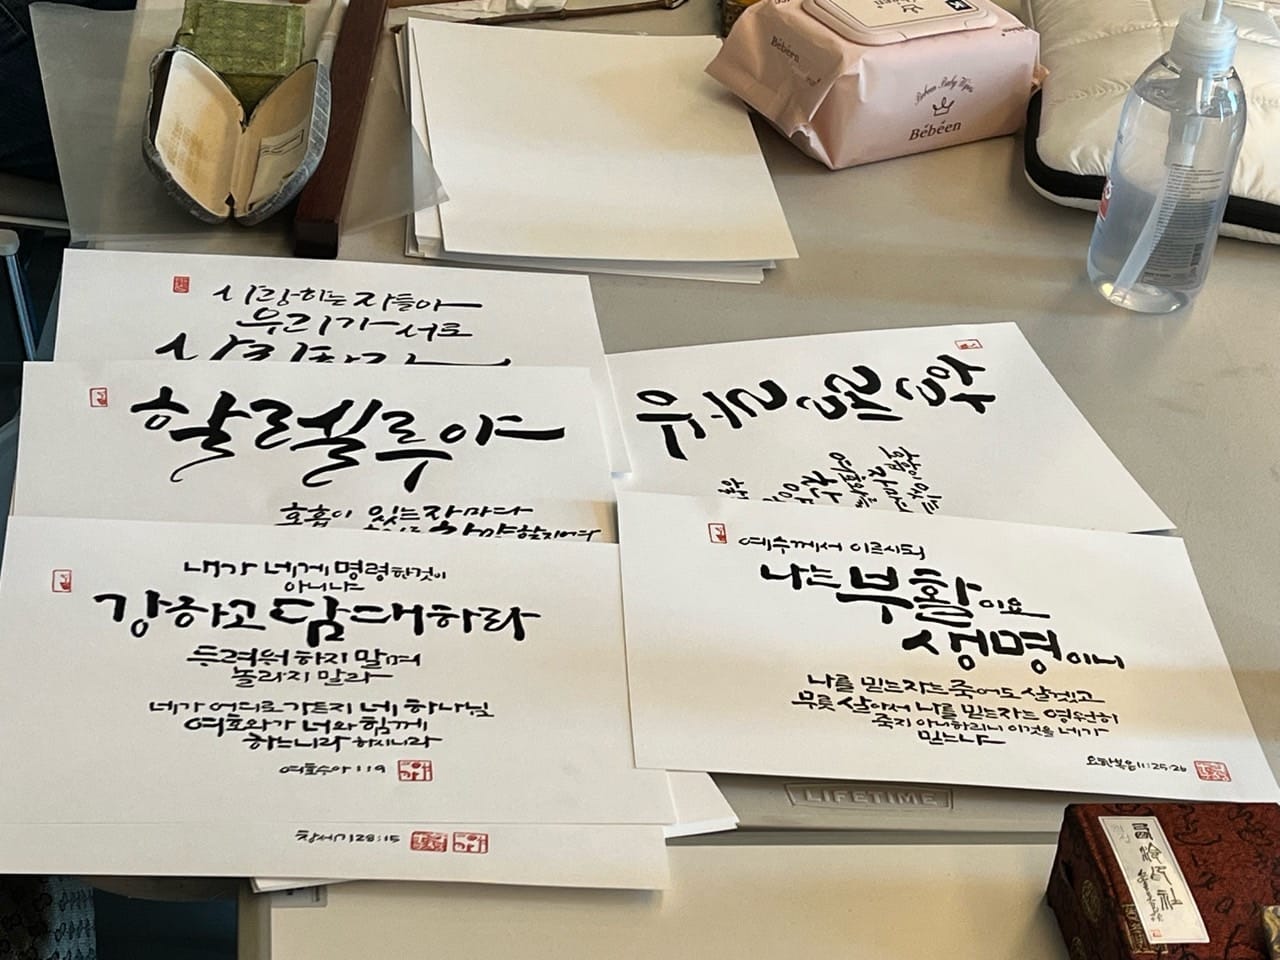 Bébéen
Bebeen Baby Wipes
Bébéen
사랑하는 자들아
우리가 서로
사랑하자
할렐루야
호흡이 있는 자마다
찬양할지어다
내가 네게 명령한것이
아니냐
강하고 담대하라
두려워하지 말며
놀라지 말라
네가 어디로 가든지 네 하나님
여호와가 너와 함께
하느니라 하시니라
여호수아 1:9
창세기 28:15
예수께서 이르시되
나는 부활이요
생명이니
나를 믿는자는 죽어도 살겠고
무릇 살아서 나를 믿는자는 영원히
죽지 아니하리니 이것을 네가
믿느냐
요한복음 11:25,26
LIFETIME